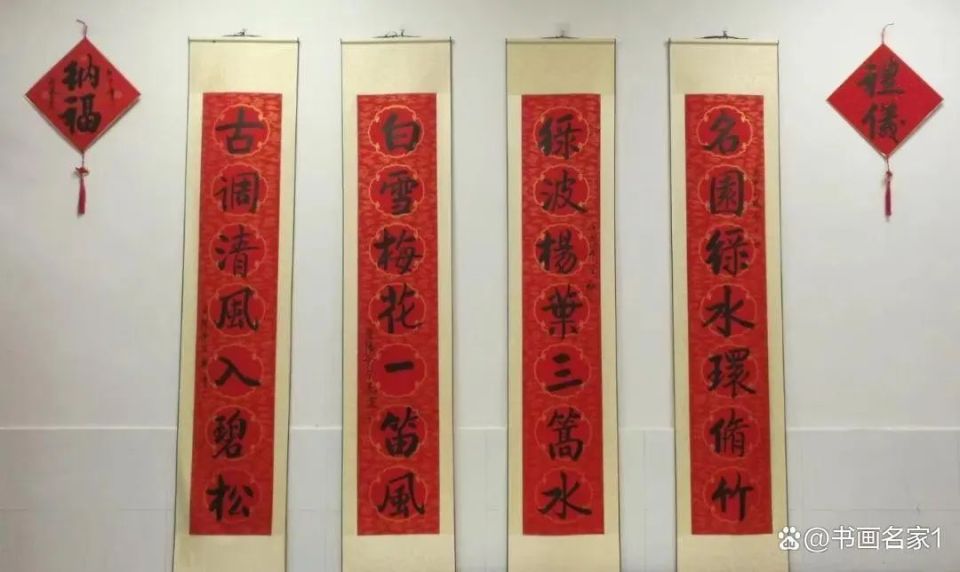 禮儀
名園綠水環脩竹
綠波楊葉三篙水
白雪梅花一笛風
古調清風入碧松
納福
du
@书画名家1